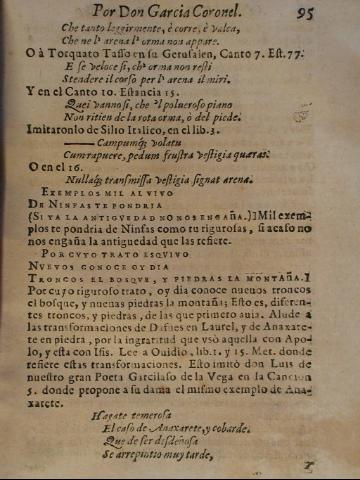 Por Don Garcia Coronel. 95
Che tanto leggirmente, è corre, è valca,
Che ne l' arena l' orma non appare.
O à Torquato Tasso en su Gerusalen, Canto 7. Est. 77.
E se veloce si, ch' orma non resti
Stendere il corso per l' arena il miri.
Y en el Canto 10. Estancia 15.
Quei vanno si, che 'l polueroso piano
Non ritien de la rota orma, ò del piede.
Imitaronlo de Silio Italico, en el lib. 3.
Campumq; volatu
Cum rapuere, pedum frustra vestigia quæras.
O en el 16.
Nullaq; transmissa vestigia signat arena.
EXEMPLOS MIL AL VIVO
DE NINFAS TE PONDRIA
(SI YA LA ANTIGUEDAD NO NOS ENGAÑA.)] Mil exem-
plos te pondria de Ninfas como tu rigurosas, si acaso no
nos engaña la antiguedad que las refiere.
POR CUYO TRATO ESQUIVO
NUEVOS CONOCE OY DIA
TRONCOS EL BOSQUE, Y PIEDRAS LA MONTAÑA.]
Por cuyo riguroso trato, oy dia conoce nueuos troncos
el bosque, y nueuas piedras la montaña; Esto es, diferen-
tes troncos, y piedras, de las que primero auia. Alude a
las transformaciones de Dafnes en Laurel, y de Anaxare-
te en piedra, por la ingratitud que vsò aquella con Apo-
lo, y esta con Ifis. Lee a Ouidio, lib. 1. y 15. Met. donde
refiere estas transformaciones. Esto imitò don Luis de
nuestro gran Poeta Garcilaso de la Vega en la Cancion
5. donde propone a su dama el mismo exemplo de Ana-
xarete.
Hagate temerosa
El caso de Anaxarete, y cobarde.
Que de ser desdeñosa
Se arrepintio muy tarde,